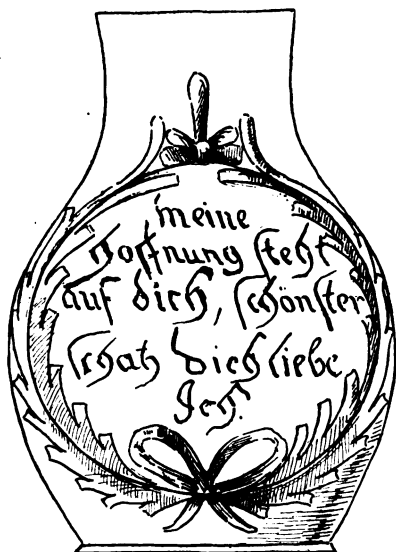 meine
Hoffnung steht
auf dich, schönster
schatz dich liebe
Ich.